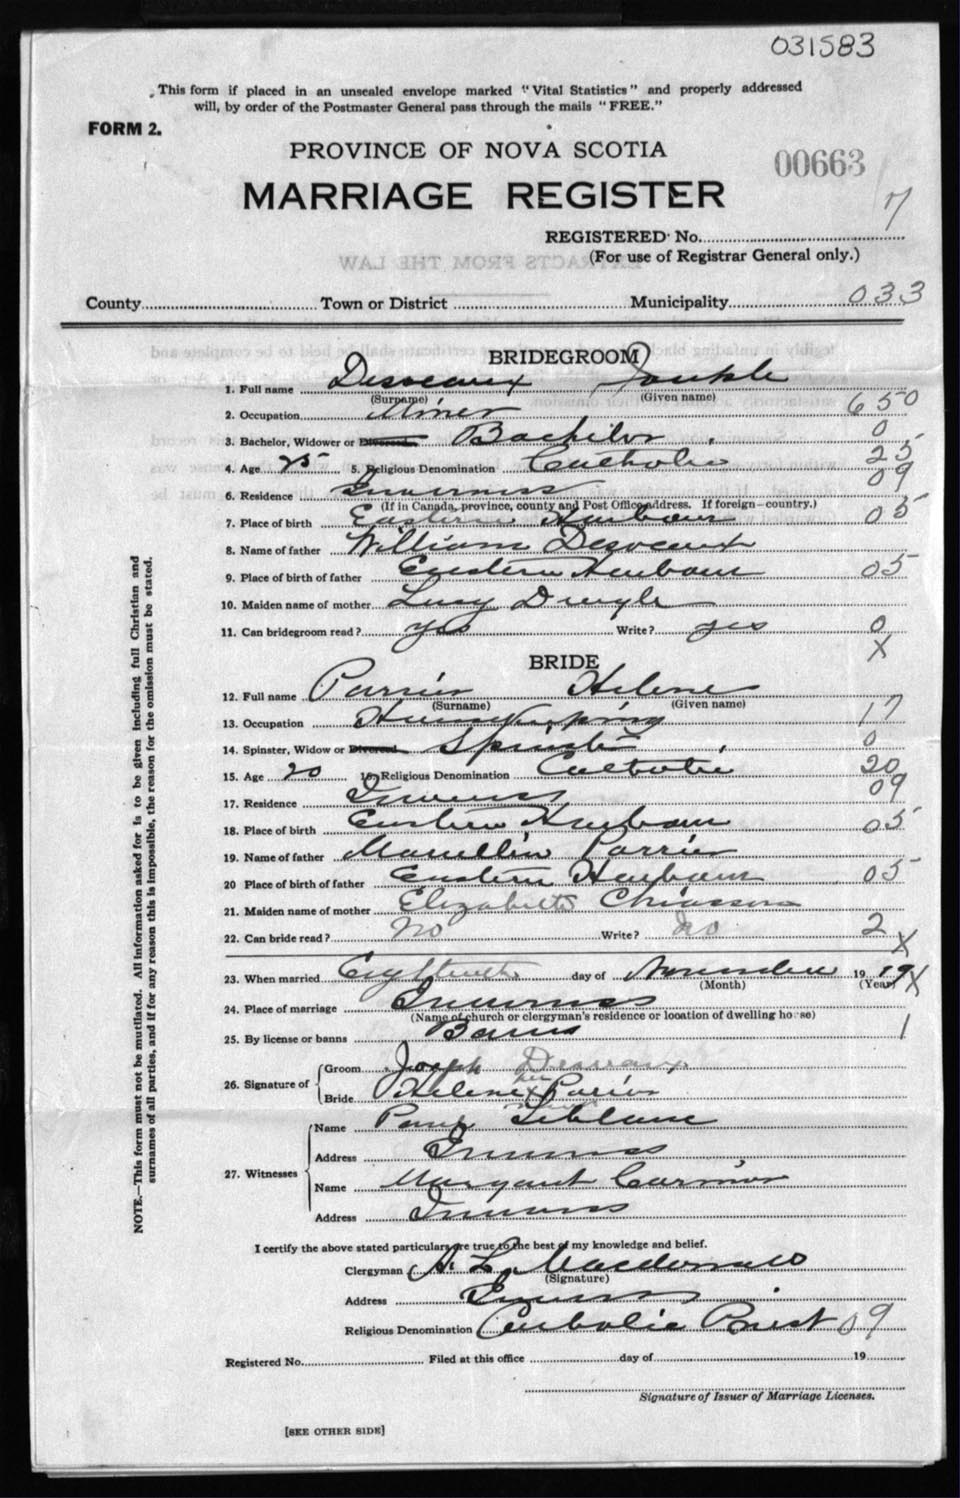 031583
This form if placed in an unsealed envelope marked "Vital Statistics" and properly addressed
will, by order of the Postmaster General pass through the mails "FREE."
FORM 2.
PROVINCE OF NOVA SCOTIA
00663
MARRIAGE REGISTER
7
REGISTERED No.
(For use of Registrar General only.)
EXTRACTS FROM THE LAW
County Town or District Municipality 033
BRIDEGROOM
1. Full name Desveaux
(Surname) (Given name)
2. Occupation Miner 650
3. Bachelor, Widower or Divorced Bachelor 0
4. Age 25 5. Religious Denomination Catholic 25
6. Residence Inverness 09
(If in Canada, province, county and Post Office address. If foreign—country.)
7. Place of birth Eastern Harbour 05
8. Name of father William Desveaux
9. Place of birth of father Eastern Harbour 05
10. Maiden name of mother Lucy
11. Can bridegroom read? yes Write? yes 0
X
BRIDE
12. Full name Parrier Helene
(Surname) (Given name)
13. Occupation Housekeeping 17
14. Spinster, Widow or Divorced Spinster 0
15. Age 20 16. Religious Denomination Catholic 20
17. Residence Inverness 09
18. Place of birth Eastern Harbour 05
19. Name of father Marcellin Parrier
20 Place of birth of father Eastern Harbour 05
21. Maiden name of mother Elizabeth Chiasson
22. Can bride read? No Write? No 2
X
23. When married Eighteenth day of November 19 19 X
(Month) (Year)
24. Place of marriage Inverness
(Name of church or clergyman's residence or location of dwelling house)
25. By license or banns Banns 1
26. Signature of Groom Joseph Desveaux
her
Bride Helene X Parrier
27. Witnesses Name Paul Leblanc
Address Inverness
Name Margaret Cormier
Address Inverness
I certify the above stated particulars are true to the best of my knowledge and belief.
Clergyman A. L. Macdonald
(Signature)
Address Inverness
Religious Denomination Catholic Priest 09
Registered No. Filed at this office day of 19
Signature of Issuer of Marriage Licenses.
[SEE OTHER SIDE]
NOTE.—This form must not be mutilated. All information asked for is to be given including full Christian and
surnames of all parties, and if for any reason this is impossible, the reason for the omission must be stated.